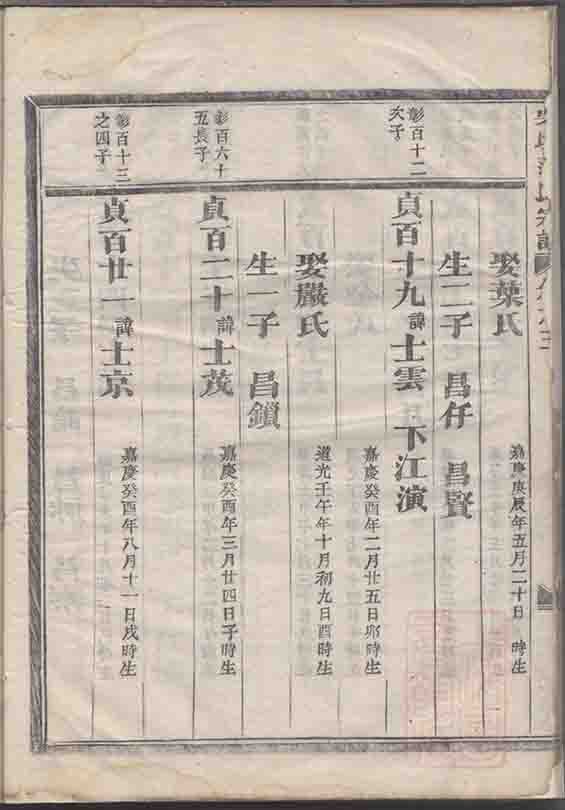 娶葉氏
嘉慶庚辰年五月二十日 時生
生二子 昌仔 昌賢
彰百十二
次子
貞百十九 諱 士雲 下江演
嘉慶癸酉年二月廿五日卯時生
娶嚴氏
道光壬午年十月初九日酉時生
生一子 昌鎖
彰百六十
五長子
貞百二十 諱 士茂
嘉慶癸酉年三月廿四日子時生
彰百十三
之四子
貞百廿一 諱 士京
嘉慶癸酉年八月十一日戌時生